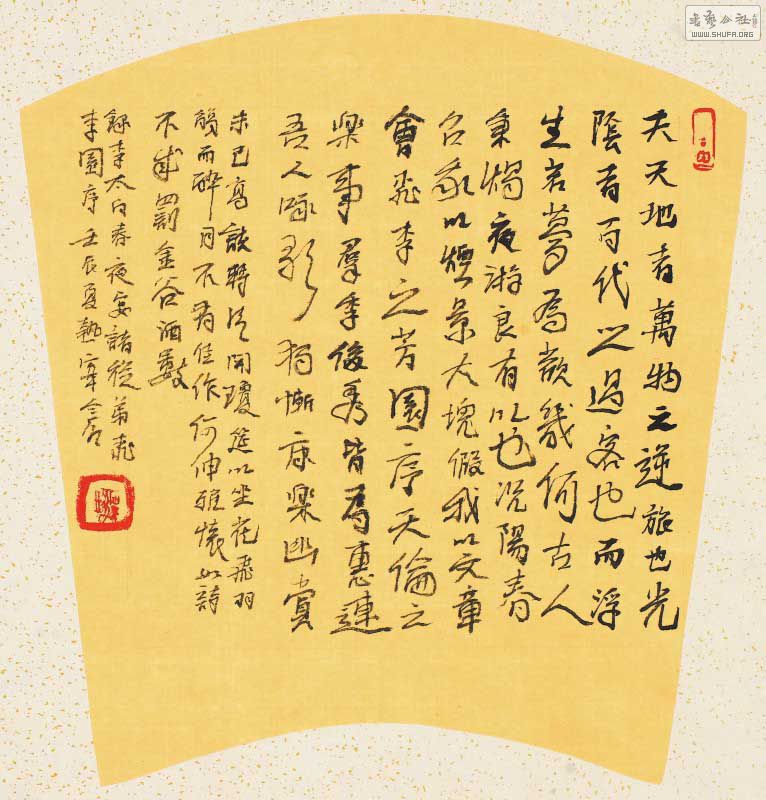 夫天地者萬物之逆旅也光
陰者百代之過客也而浮
生若夢為歡幾何古人
秉燭夜游良有以也況陽春
召我以煙景大塊假我以文章
會桃李之芳園序天倫之
樂事羣季俊秀皆為惠連
吾人詠歌獨慚康樂幽賞
未已高談轉清開瓊筵以坐花飛羽
觴而醉月不有佳作何伸雅懷如詩
不成罰金谷酒數
錄李太白春夜宴諸從弟桃
李園序壬辰夏熱
書藝公社
WWW.SHUFA.ORG